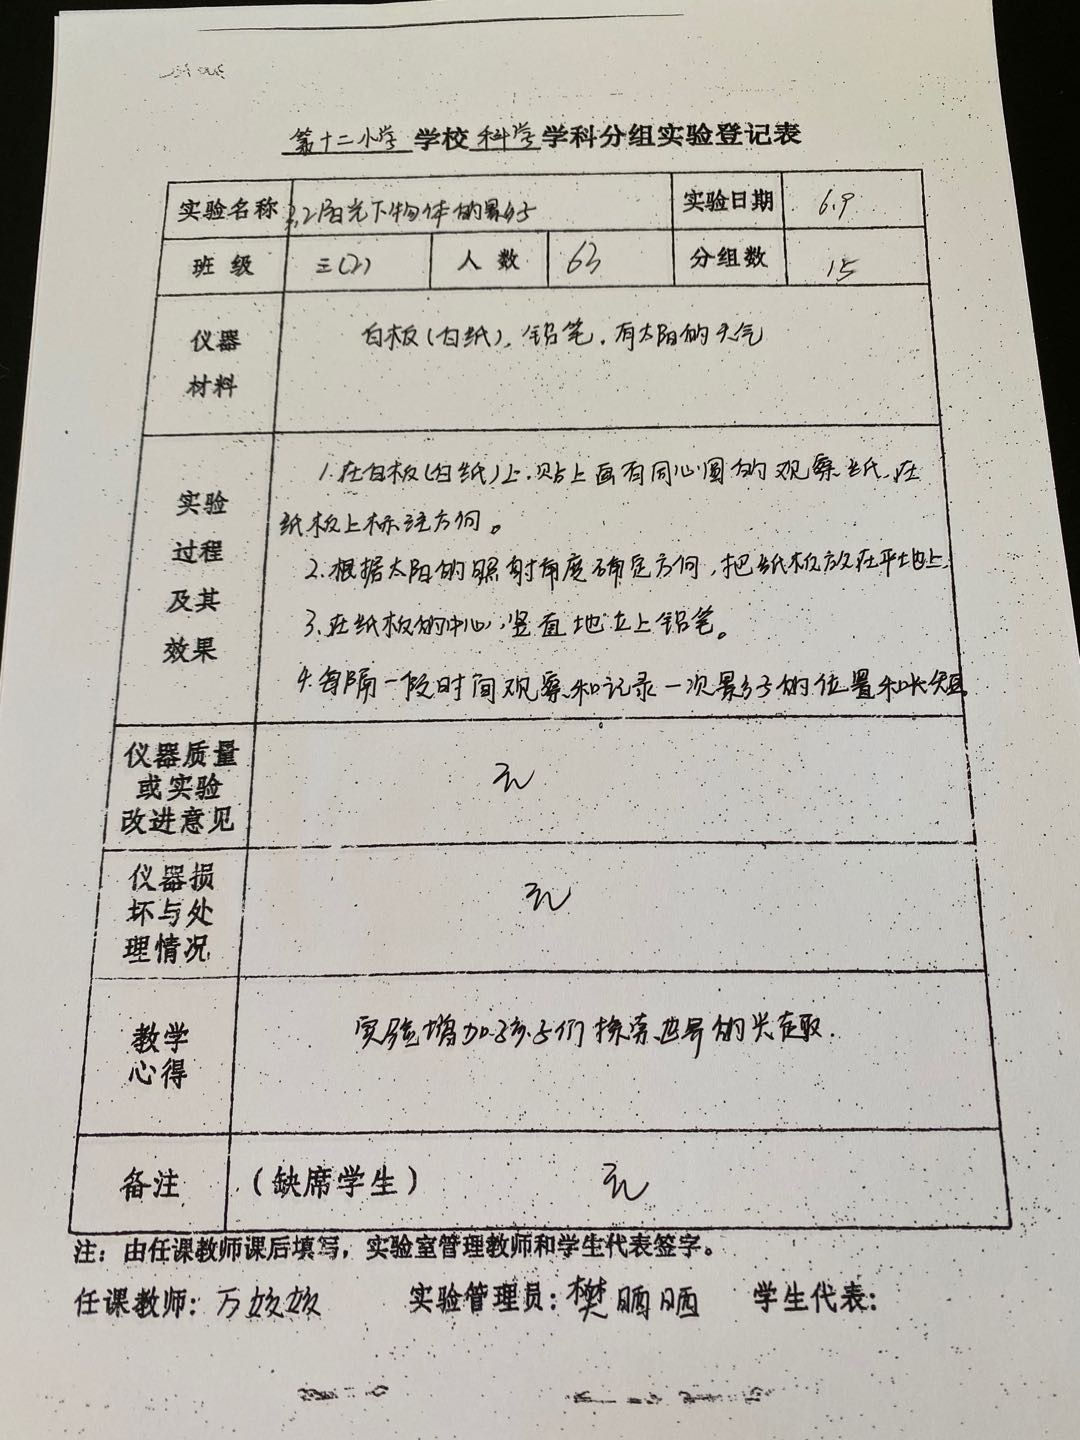 第十二小学 学校 科学 学科分组实验登记表
实验名称 3.2阳光下物体的影子 实验日期 6.9
班级 三(2) 人数 63 分组数 15
仪器
材料
白板(白纸)、铅笔、有太阳的天气
实验
过程
及其
效果
1.在白板(白纸)上,贴上画有同心圆的观察纸,在
纸板上标注方向。
2.根据太阳的照射角度确定方向,把纸板放在平地上.
3.在纸板的中心,竖直地立上铅笔。
4.每隔一段时间观察和记录一次影子的位置和长短。
仪器质量
或实验
改进意见
无
仪器损
坏与处
理情况
无
教学
心得
实验增加孩子们探索世界的兴趣.
备注 (缺席学生) 无
注:由任课教师课后填写,实验室管理教师和学生代表签字。
任课教师: 万姣姣 实验管理员: 樊晒晒 学生代表: